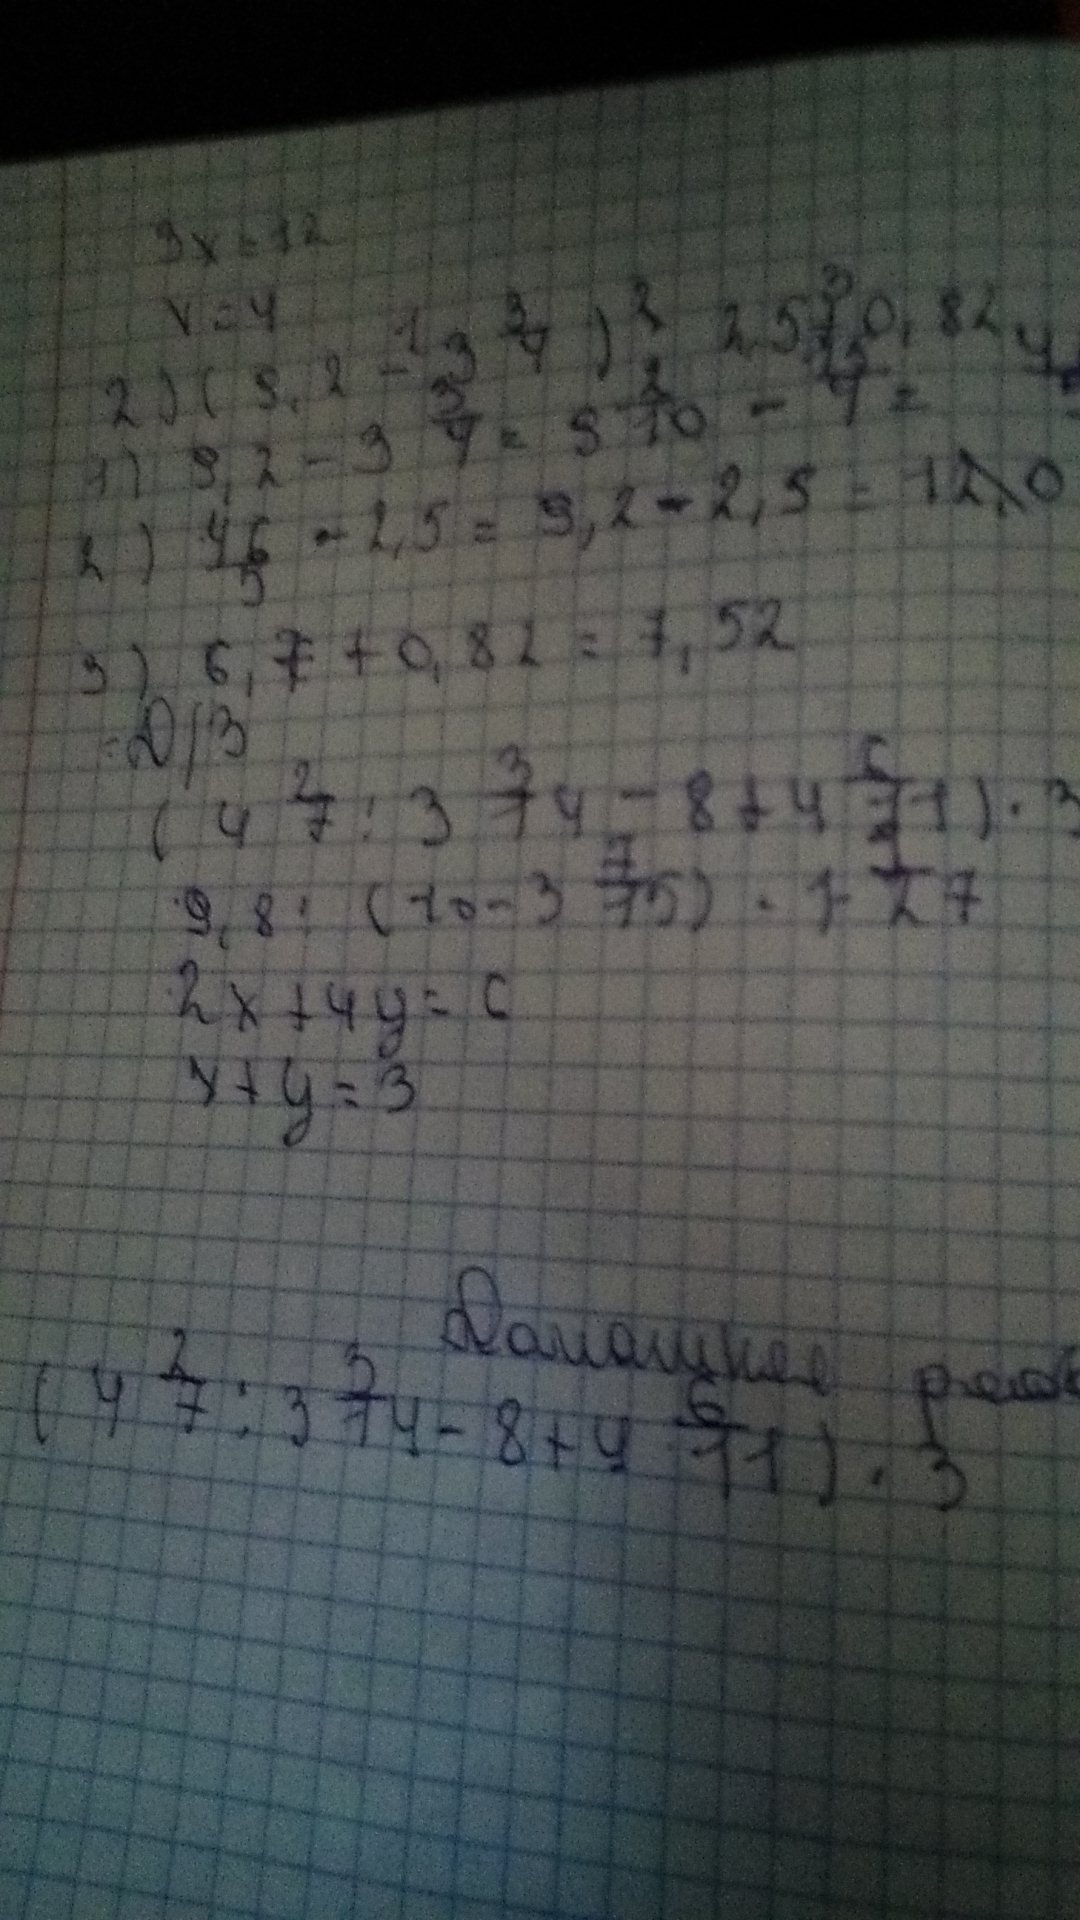 9x=12
x=4
2)(9,2-3 3/4) 2,5 + 0,82
1) 9,2-3 3/4 = 9 2/10 - 15/4 =
2) 46/5 - 2,5 = 9,2-2,5 =
3) 6,7+0,82=7,52
Д/З
(4 2/7 : 3 3/14 - 8+4 6/11) · 3
9,8 : (10-3 7/15) · 1 1/27
2x+4y=6
x+y=3
Домашнее
(4 2/7 : 3 3/14 - 8+4 6/11) · 3